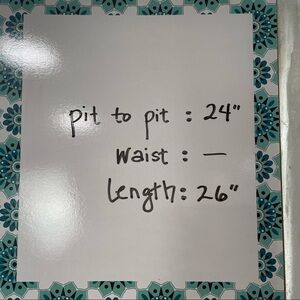 pit to pit : 24"
Waist : —
Length: 26"